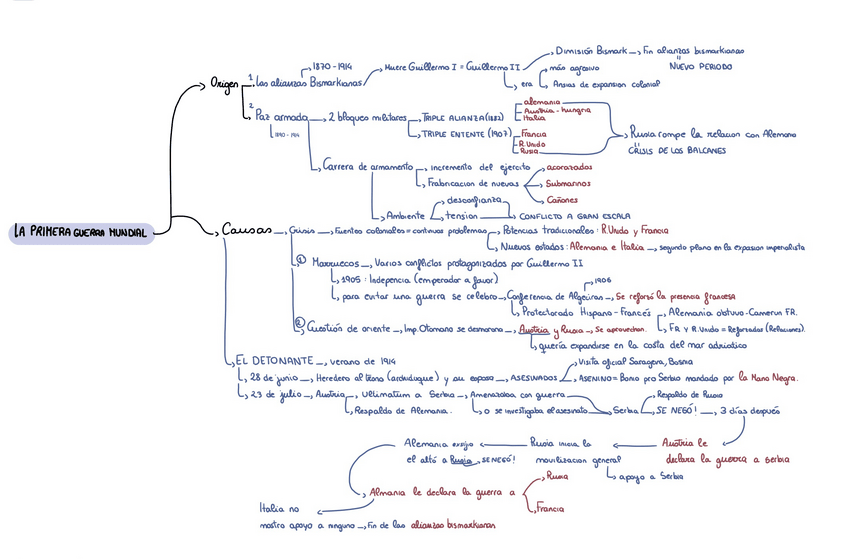 LA PRIMERA GUERRA MUNDIAL
Origen
1 Las alianzas Bismarkianas
1870-1914
Muere Guillermo I = Guillermo II
Dimisión Bismark → Fin alianzas bismarkianas
NUEVO PERIODO
era
más agresivo
Ansias de expansion colonial
2 Paz armada
1890-1914
2 bloques militares
TRIPLE ALIANZA (1882)
alemania
Austria-hungria
Italia
TRIPLE ENTENTE (1907)
Francia
R.Undo
Rusia
Rusia rompe la relacion con Alemania
CRISIS DE LOS BALCANES
Carrera de armamento
incremento del ejercito
Frabricacion de nuevas
acorazados
Submarinos
Cañones
Ambiente
desconfianza
tension
CONFLICTO A GRAN ESCALA
Causas
Crisis → Fuentes coloniales = continuos problemas
Potencias tradicionales: R.Undo y Francia
Nuevos estados: Alemania e Italia → segundo plano en la expasion imperialista
1 Marruecos → Varios conflictos protagonizados por Guillermo II
1905: Indepencia (emperador a favor)
para evitar una guerra se celebro → Conferencia de Algeciras → Se reforsó la presencia francesa
1906
Protectorado Hispano-Francés
Alemania obtuvo-Camerun FR.
FR Y R.Undo = Reforzadas (Relaciones).
2 Cuestión de oriente → Imp.Otomano se desmorona → Austria y Rusia → Se aprovechan.
quería expandirse en la costa del mar adriatico
EL DETONANTE → verano de 1914
28 de junio → Heredero al trono (archiduque) y su esposa → ASESINADOS
Visita oficial Sarageva, Bosnia
ASENINO = Bonio pro Serbio mandado por la Mano Negra.
23 de julio → Austria → Ultimatum a Serbia → Amenazaba con guerra
Respaldo de Alemania.
o se investigaba el asesinato → Serbia
Respaldo de Rusia
SE NEGÓ! → 3 días después
Austria le
declara la guerra a Serbia
Rusia inicia la
movilizacion general
apoyo a Serbia
Alemania exigio
el altó a Rusia, SE NEGÓ!
Almania le declara la guerra a
Rusia
Francia
Italia no
mostro apoyo a ninguno → Fin de las alianzas bismarkianas